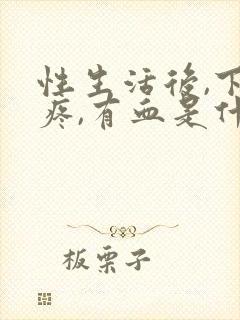 性生活后,下
疼,有血是什
板栗子